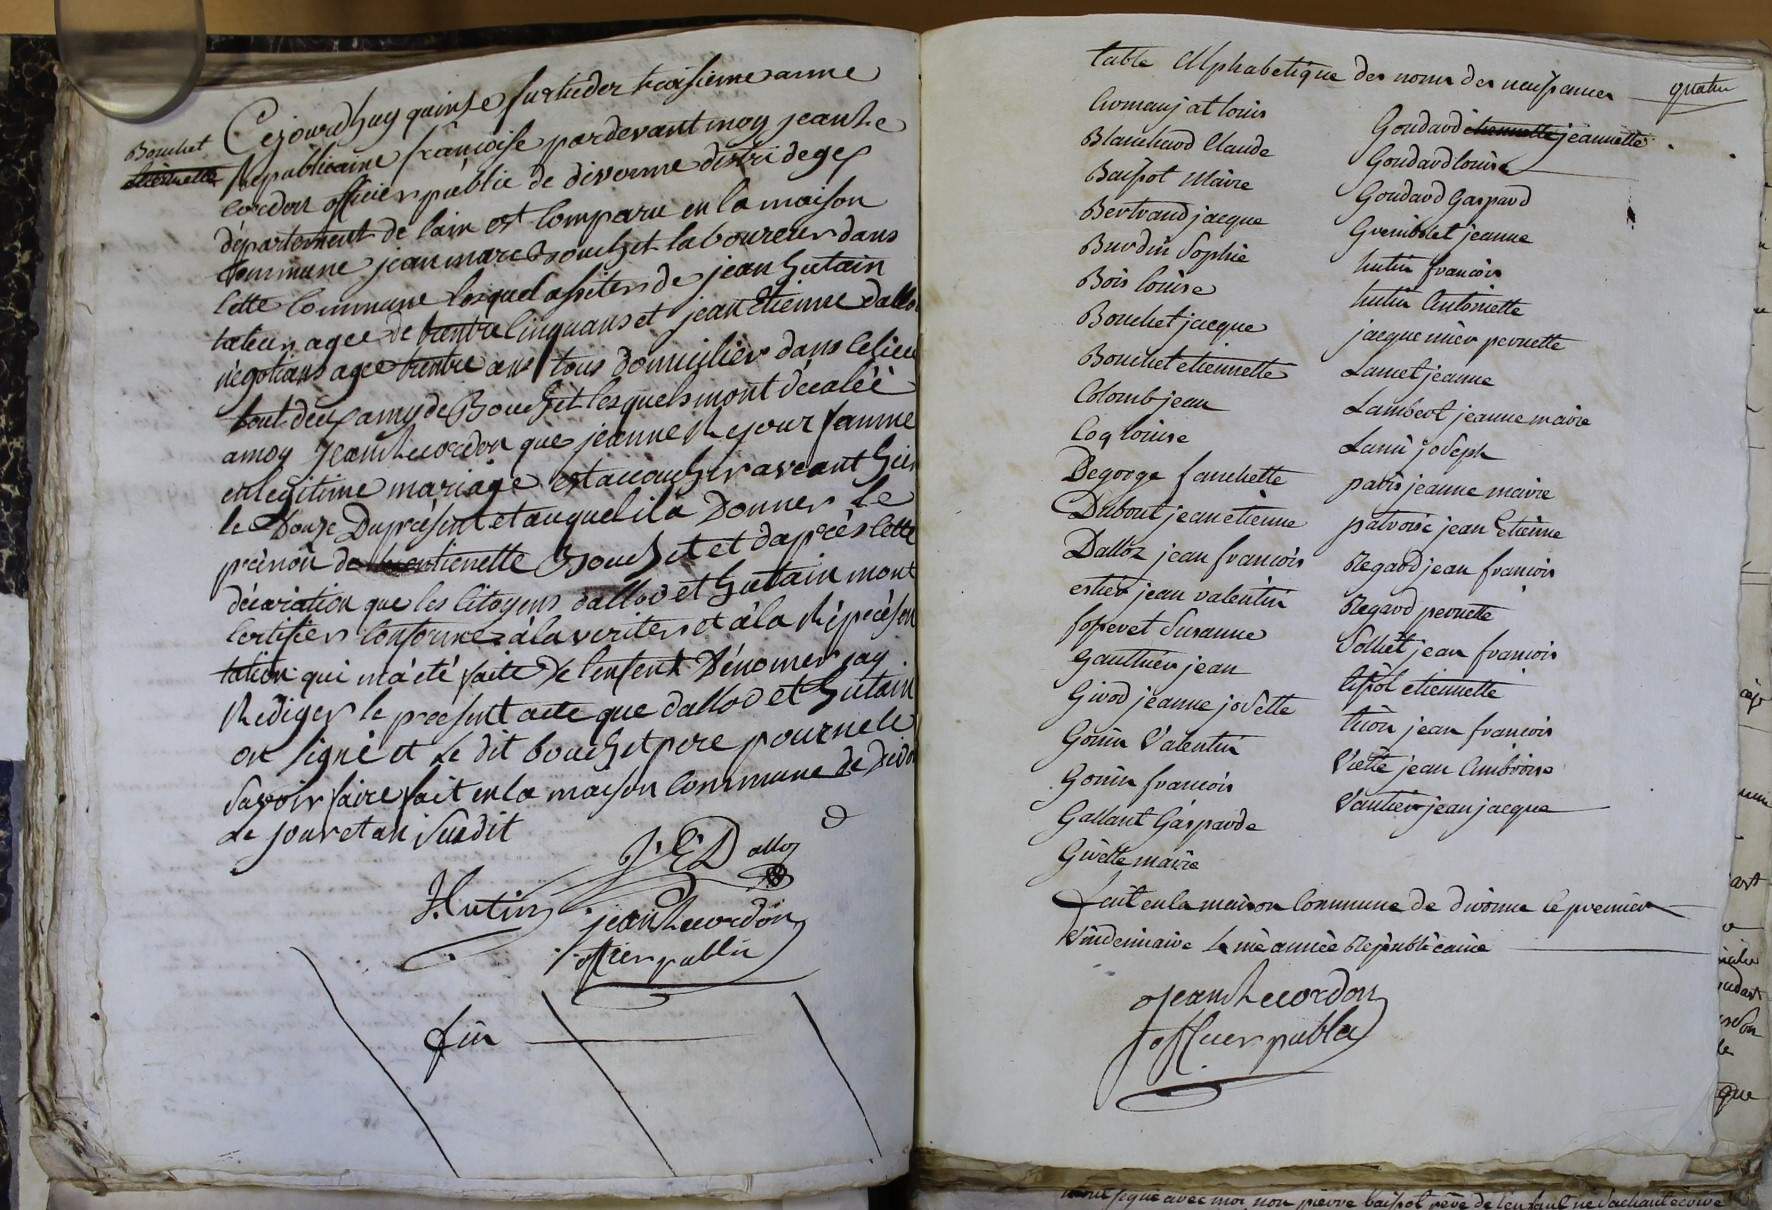 Bouchet
etiennette
Cejourdhuy quinse fructidor troisieme anne
Republicaine françoise pardevant moy jean he
cordon officier public de divonne distri de gex
département de lain est comparu en la maison
Commune jean marc Bouchet laboureur dans
cette Commune lequel assister de jean hutain
agee de trentre cinquans et jean Etienne dallo
negotians agee trentre ans tous domicilier dans celieu
tout deux amy de Bouchet lesquels mont décaléé
amoy jean he cordon que jeanne Rejour famme
en legitime mariage est accoucher avant hier
le Douze Du présent et auquel il a Donner le
prénon de etienette Bouchet et daprès cette
décaration que les Citoyens dallod et hutain mont
certifier conforme à la veriter et à la Réprésen
tation qui ma été faite de lenfent Dénomer jay
Rediger le présent acte que dallod et hutain
on signé et le dit bouchet pere pour ne le
savoir faire fait en la maison Commune de divo
le jour et an susdit
J. E. Dalloz
J. Hutin
jean he cordon
officier public
fin
table Alphabetique des noms des naissances quatre
Blanchard Claude
Baissot Marie
Bertrand jacque
Burdin Sophie
Bois louise
Bouchet jacque
Bouchet etiennette
Colomb jean
Coq louise
Degeorge fanchette
Dubout jean etienne
Dalloz jean francois
estier jean valentin
Susanne
Gauthier jean
Girod jeanne josette
Gonin Valentin
Gonin francois
Gallant Gasparde
Givette marie
Goudard etiennette jeannette
Goudard louise
Goudard Gaspard
Greniblet jeanne
hutin francois
hutin Antoinette
jacquemier pernette
Lancet jeanne
Lambert jeanne marie
Lami joseph
patris jeanne marie
patroise jean Etienne
Regard jean francois
Regard pernette
Solliet jean francois
tissot etiennette
thion jean francois
Viette jean Ambroise
Vautier jean jacque
fait en la maison Commune de divonne le premier
Vindemiaire 4 me année Republicaine
jean he cordon
officier public